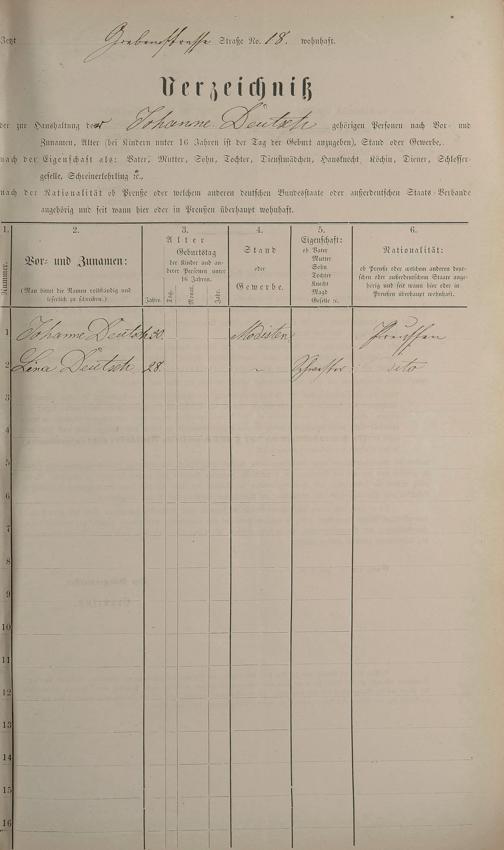 Jetzt Grabenstrasse Straße No. 18. wohnhaft.
Verzeichniß
der zur Haushaltung der Johanne Deutsch gehörigen Personen nach Vor- und
Zunamen, Alter (bei Kindern unter 16 Jahren ist der Tag der Geburt anzugeben), Stand oder Gewerbe.
nach der Eigenschaft als: Vater, Mutter, Sohn, Tochter, Dienstmädchen, Hausknecht, Köchin, Diener, Schlosser-
geselle, Schreinerlehrling ꝛc.,
nach der Nationalität ob Preuße oder welchem anderen deutschen Bundesstaate oder außerdeutschen Staats-Verbande
angehörig und seit wann hier oder in Preußen überhaupt wohnhaft.
1. 2. 3. 4. 5. 6.
Nummer.
Vor- und Zunamen:
(Man bittet die Namen vollständig und
leserlich zu schreiben.)
Alter
Geburtstag
der Kinder und an-
derer Personen unter
16 Jahren.
Jahre. Tag. Monat. Jahr.
Stand
oder
Gewerbe.
Eigenschaft:
ob Vater
Mutter
Sohn
Tochter
Knecht
Magd
Geselle ꝛc.
Nationalität:
ob Preuße oder welchem anderen deut-
schen oder außerdeutschen Staate ange-
hörig und seit wann hier oder in
Preußen überhaupt wohnhaft.
1 Johanne Deutsch 30. Modisten Preussen
2 Lina Deutsch 28. " Schwester dito
3
4
5
6
7
8
9
10
11
12
13
14
15
16